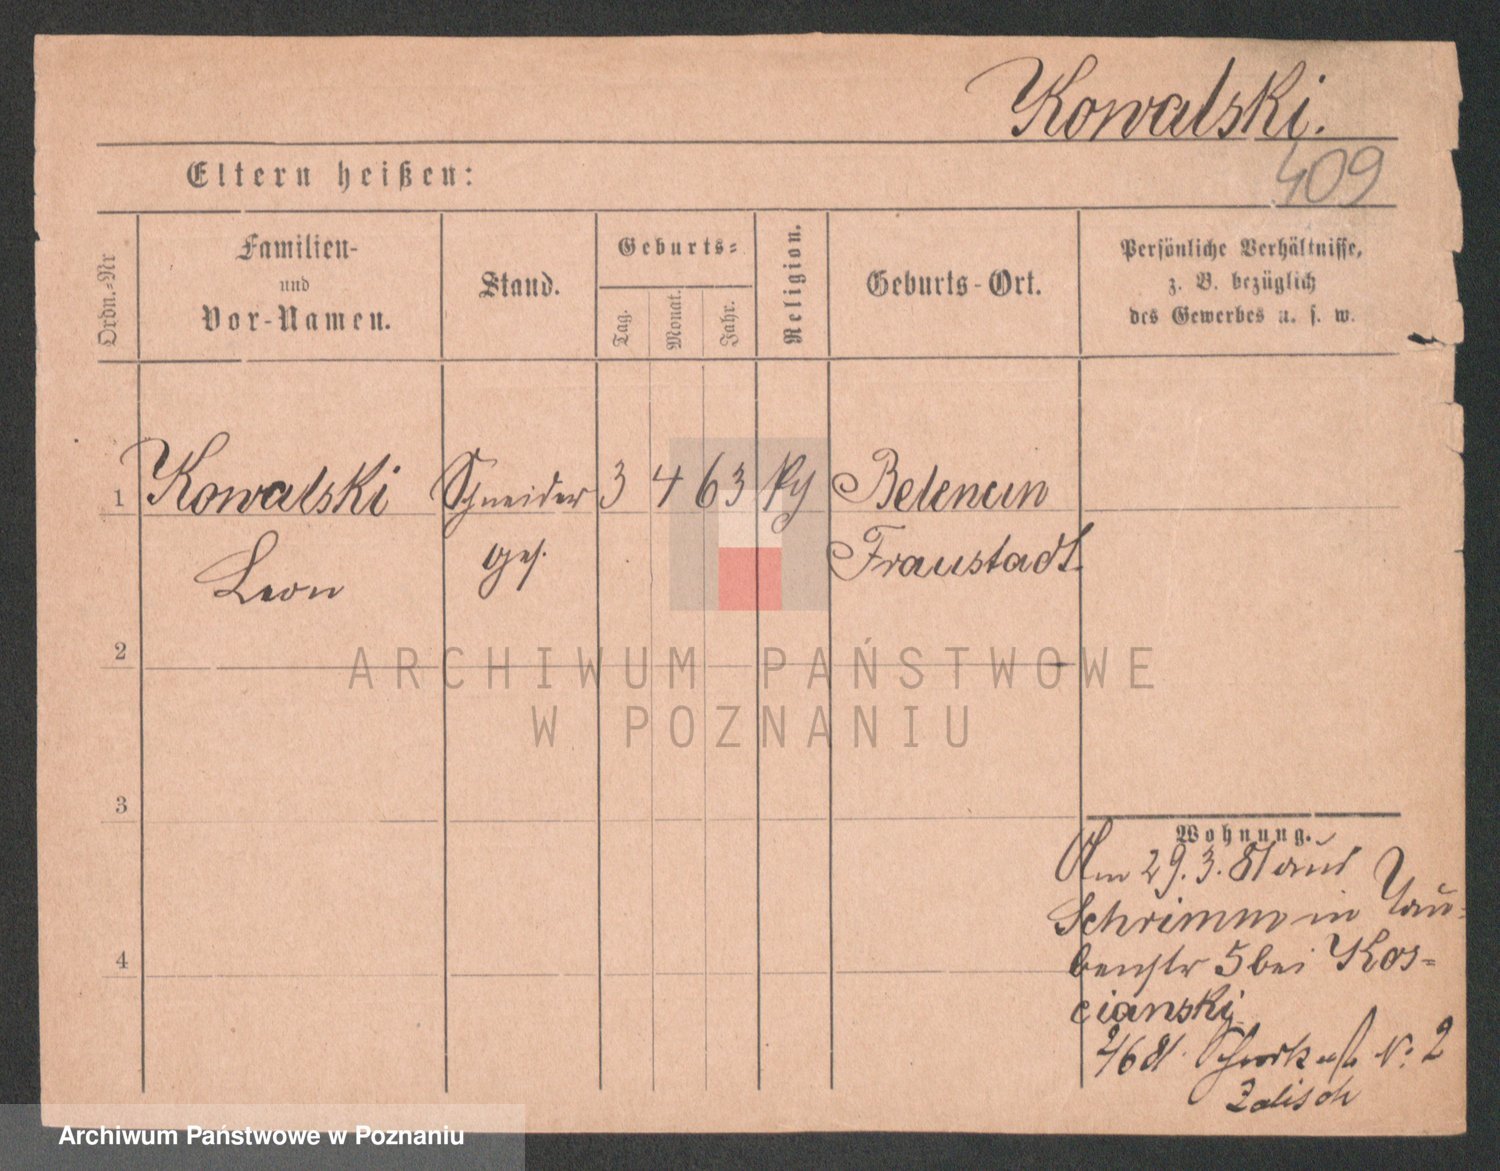 Kowalski.
Eltern heißen:
409
Ordn.-Nr
Familien-
und
Vor-Namen.
Stand.
Geburts-
Tag.
Monat.
Jahr.
Religion.
Geburts-Ort.
Persönliche Verhältnisse,
z. B. bezüglich
des Gewerbes u. s. w.
1 Kowalski Schneider 3 4 63 Belencin
Leon ges. Fraustadt.
2
ARCHIWUM PAŃSTWOWE
W POZNANIU
3
Wohnung.
Am 29.3.81 aus
Schrimm in Tau-
benstr 5 bei Kos-
cianski
N: 2
Zalisch
4
Archiwum Państwowe w Poznaniu